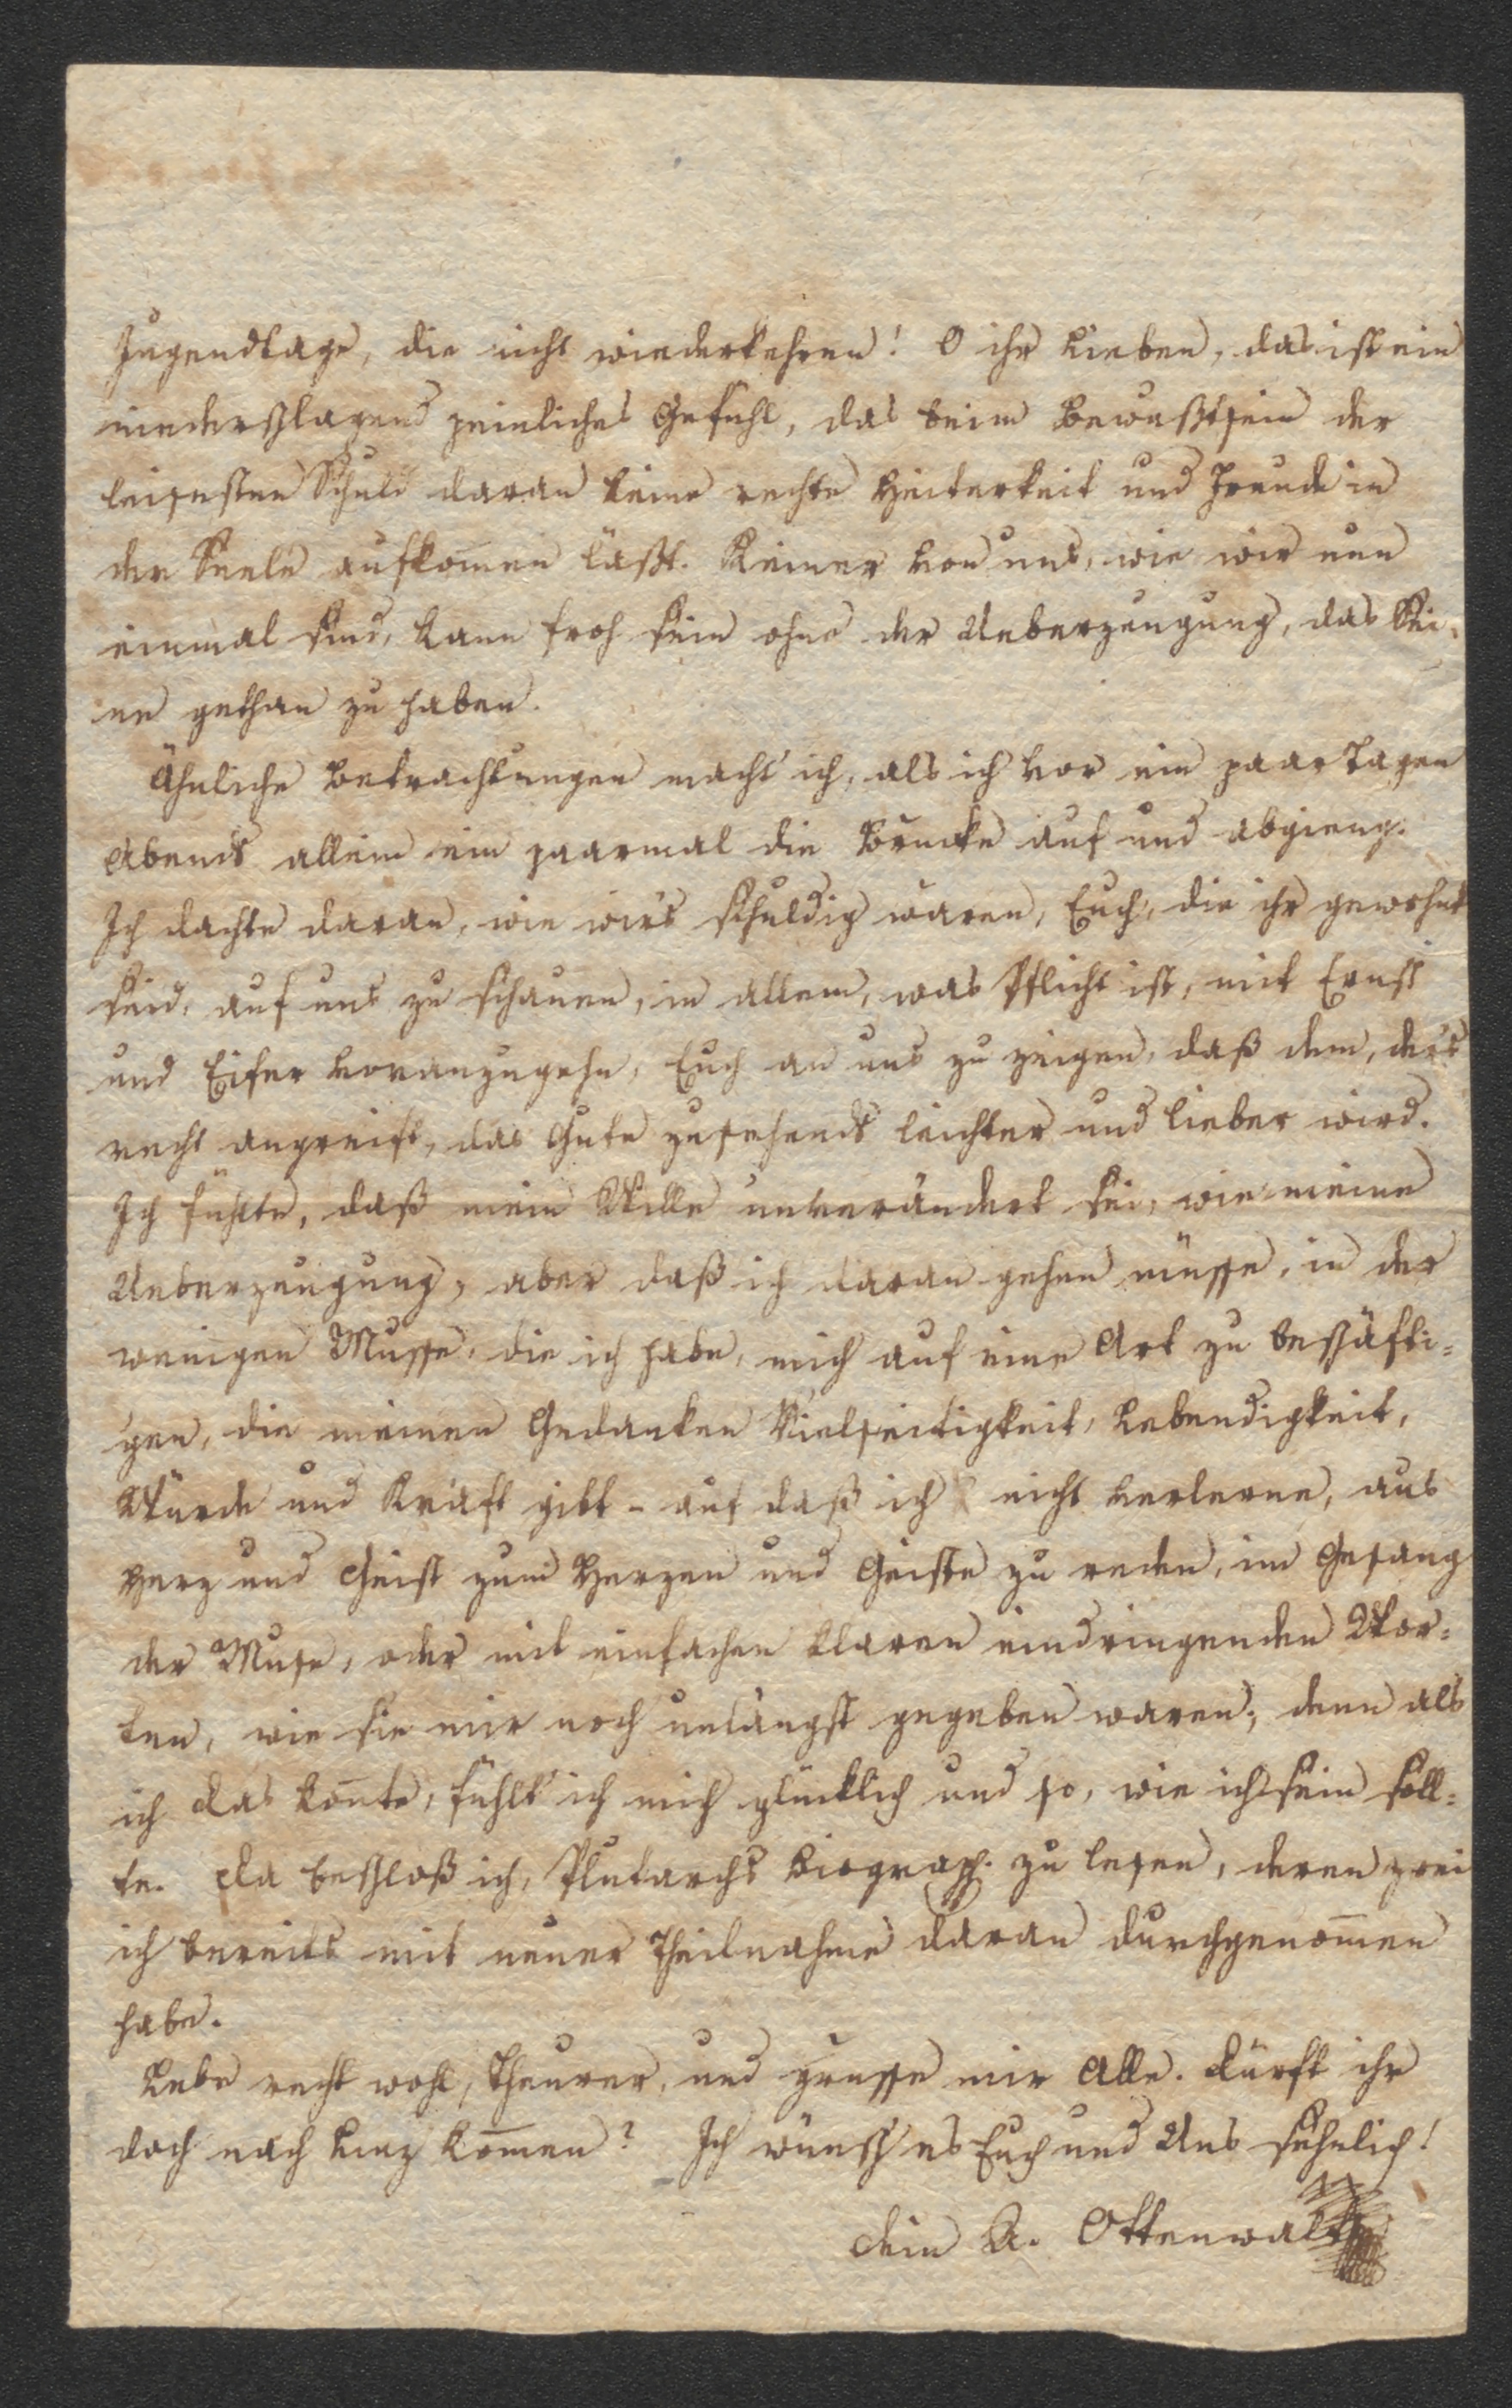 Jugendtage, die nicht wiederkehren! O ihr Lieben, das ist ein
niederschlagend peinliches Gefühl, das beim Bewußtsein der
leisesten Schuld daran keine rechte Heiterkeit und Freude in
der Seele aufkom̅en läßt. Keiner von uns, wie wir nun
einmal sind, kann froh sein ohne der Ueberzeugung, das Sei-
ne gethan zu haben.
Ähnliche Betrachtungen macht' ich, als ich vor ein paar Tagen
Abends allein ein paarmal die Brücke auf und abgieng.
Ich dachte daran, wie wir's schuldig wären, Euch, die ihr gewohnt
seid, auf uns zu schauen, in allem, was Pflicht ist, mit Ernst
und Eifer voranzugehn, Euch an uns zu zeigen, daß dem, der's
recht angreift, das Gute zusehends leichter und lieber wird.
Ich fühlte, daß mein Wille unverändert sei, wie meine
Ueberzeugung, aber daß ich daran gehen müsse, in der
wenigen Musse, die ich habe, mich auf eine Art zu beschäfti=
gen, die meinen Gedanken Vielseitigkeit, Lebendigkeit,
Würde und Kraft gibt - auf daß ich nicht verlerne, aus
Herz und Geist zum Herzen und Geiste zu reden, im Gesang
der Muse, oder mit einfachen klaren eindringenden Wor=
ten, wie sie mir noch unlängst gegeben waren; denn als
ich das kon̅te, fühlt' ich mich glücklich und so, wie ich sein soll=
te. Da beschloß ich, Plutarchs Biograph. zu lesen, deren zwei
ich bereits mit neuer Theilnahme daran durchgenom̅en
habe.
Lebe recht wohl, Theurer, und grüsse mir Alle. Dürft ihr
doch nach Linz kom̅en? Ich wünsch es Euch und Uns sehnlich!
Dein A. Ottenwalt